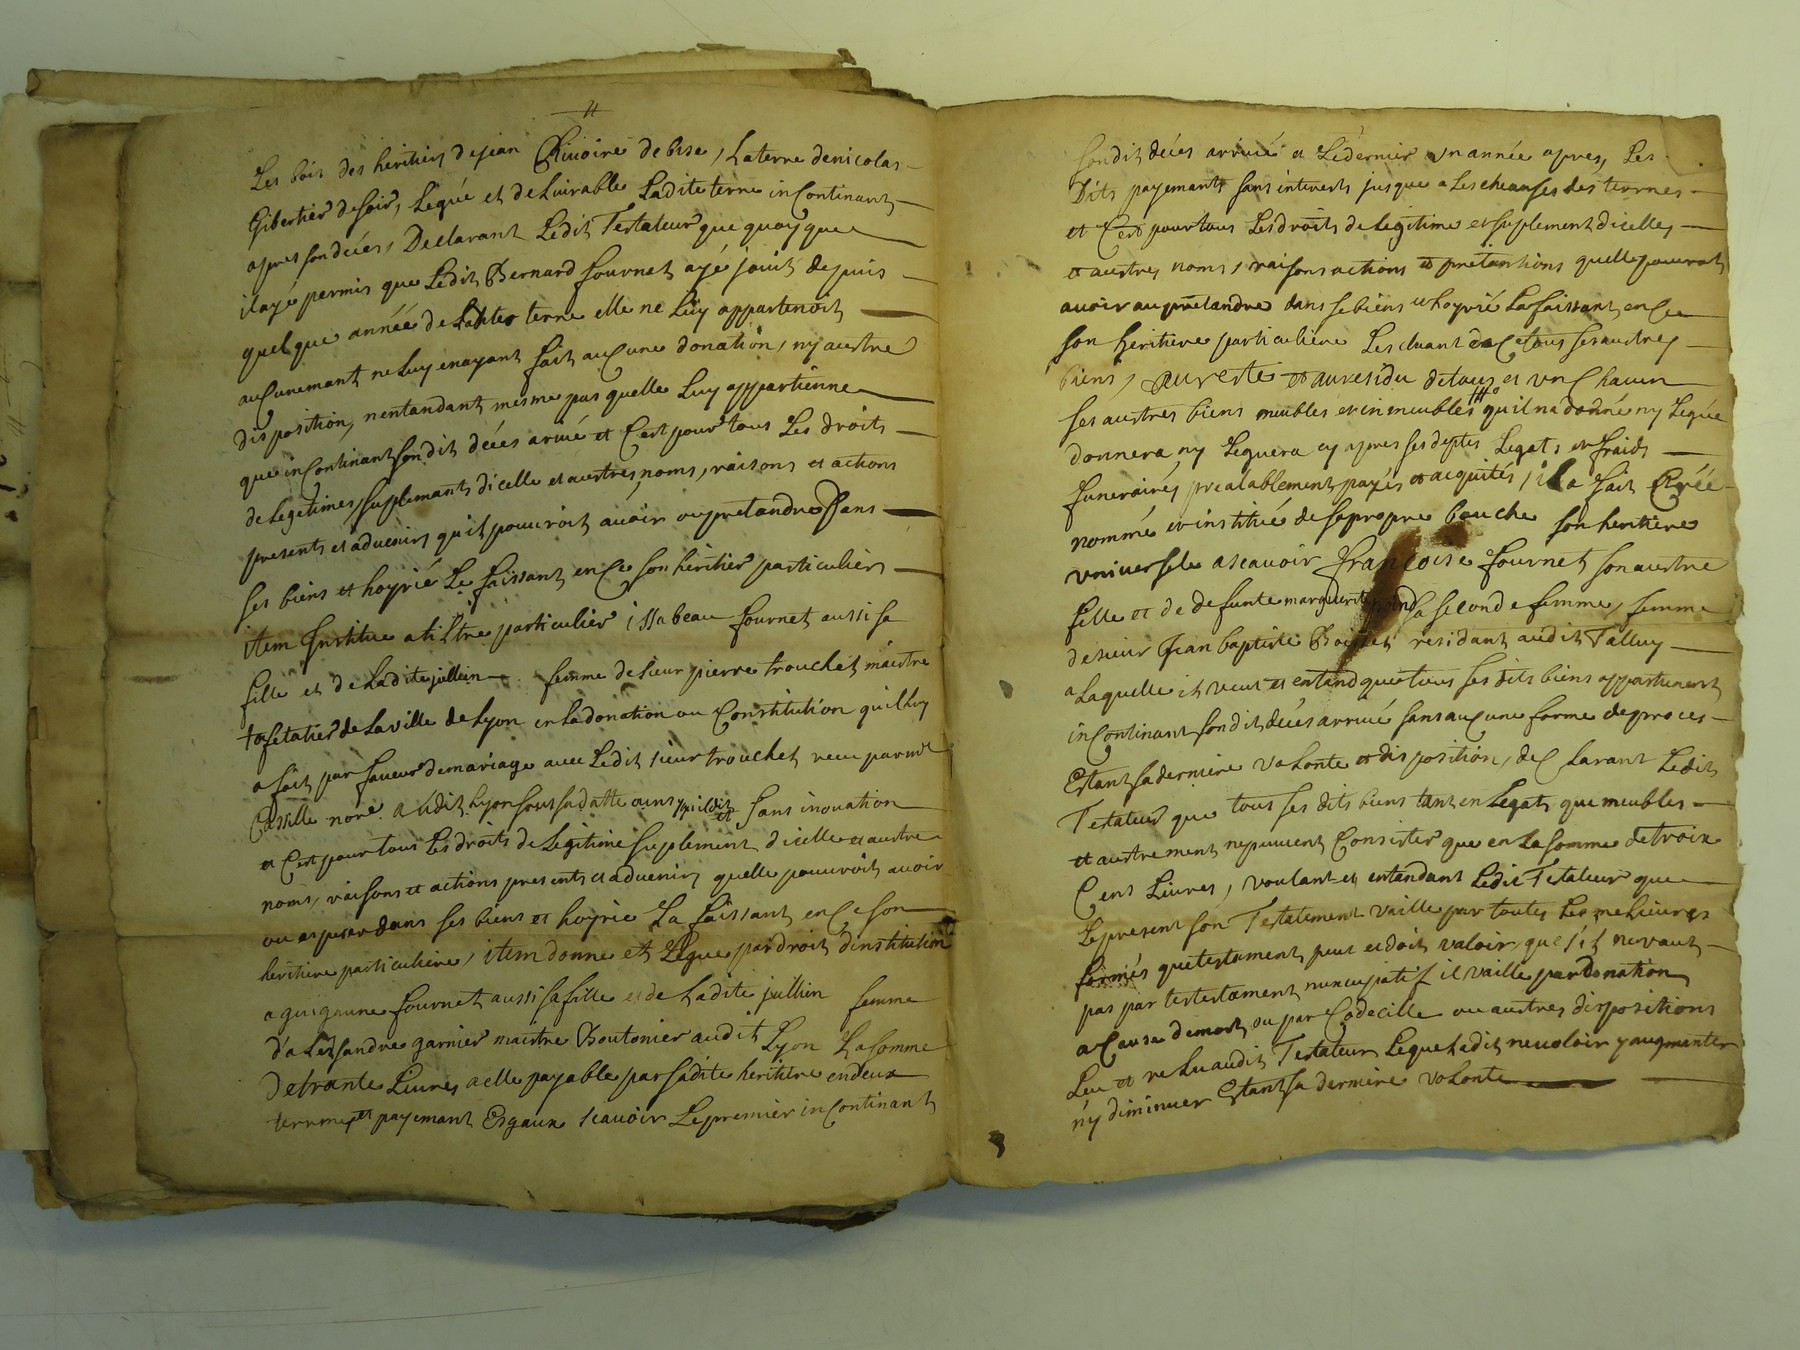 Les bois des heritiers de jean Rivoire de bise, La terre de nicolas
Gibertier de soir, Legué et delivrable Ladite terre inContinant
apres son decées, Declarant Ledit Testateur que quoyque
il ayé permis que Ledit Bernard fournet ayé jouit depuis
quelque année de Ladite terre elle ne Luy appartenoit
auCunemant ne Luy en ayant fait auCune donation, ny austre
disposition, nentandant mesme pas quelle Luy appartienne
que inContinant son dit décées arivé et C'est pour tous Les droits
de Legetimes, supplemants dicelle et austres noms, raisons et actions
presents et advenirs qu'il pouvroit avoir ou pretandre Dans
ses biens et hoyrié Le faissant en Ce son héritier particuliers
item Institue a tiltre particulier issabeau fournet aussi sa
fille et de Ladite jullien femme de sieur pierre trouchet maistre
tafetatier de La ville de Lyon en La donation ou Constitution qu'il Luy
a fait par faveur de mariage avec Ledit sieur trouchet receu par mᵉ
nore. audit Lyon sous sa datte ainsy qu'il dit sans inovation
et C'est pour tous Les droits de Legitime supplement dicelle et austre
noms, raisons et actions presents et advenirs quelle pouvroit avoir
ou esperer dans ses biens et hoyrie La faissant en Ce son
heritiere particuliere, item donne et Legue par droit dinstitution
a guigaune fournet aussi sa fille et de Ladite jullien femme
d'aLexsandre garnier maistre Boutonier audit Lyon La somme
De trante Livres a elle payable par sadite heritiere en deux
termes et payemant Esgaux scavoir Le premier inContinant
son dit décés arrivé et Le dernier un année apres, Les
Dits payemants sans interests jusque a Les cheanses des termes
et C'est pour tous Les droits de Legitime et suplement dicelles
et austres noms, raisons actions et pretantions quelle pouvroit
avoir au pretandre dans se biens et hoyrié La faissant en Ce
son heritiere particuliere Les cluant de Ce tous ses austres
biens, au reste et au residu de tous et un Chacun
ses austres biens meubles et inmeubles qu'il na donné ny Legué
donnera ny Leguera cy apres ses deptes Legats et fraids
funeraires prealablement payés et acquités, il a fait Créé
nommé et institué de sa propre bouche son heritiere
universele ascavoir françoise fournet son austre
fille et de defunte marguerite sa seconde femme, femme
de sieur Jean baptiste residant audit Talluy
a Laquelle il veut et entand que tous ses dits biens appartienent
inContinant son dit décés arrivé sans auCune forme de proces
Estant sa derniere voLonte et disposition, deClarant Ledit
Testateur que tous ses dits biens tant en Legats que meubles
et austrement ne peuvent Consister que en La somme de troix
Cens Livres, voulant et entandant Ledit Testateur que
Le present son Testatement vaille par toutes Les melieures
formés que testament peut et doit valoir, que s'il ne vaut
pas par testestament nuncupatif il vaille par donation
a Cause de mort ou par Codecille ou austres dispositions
Leu et reLu audit Testateur Lequel a dit ne voloir y augmenter
ny diminuer Estant sa derniere voLonte